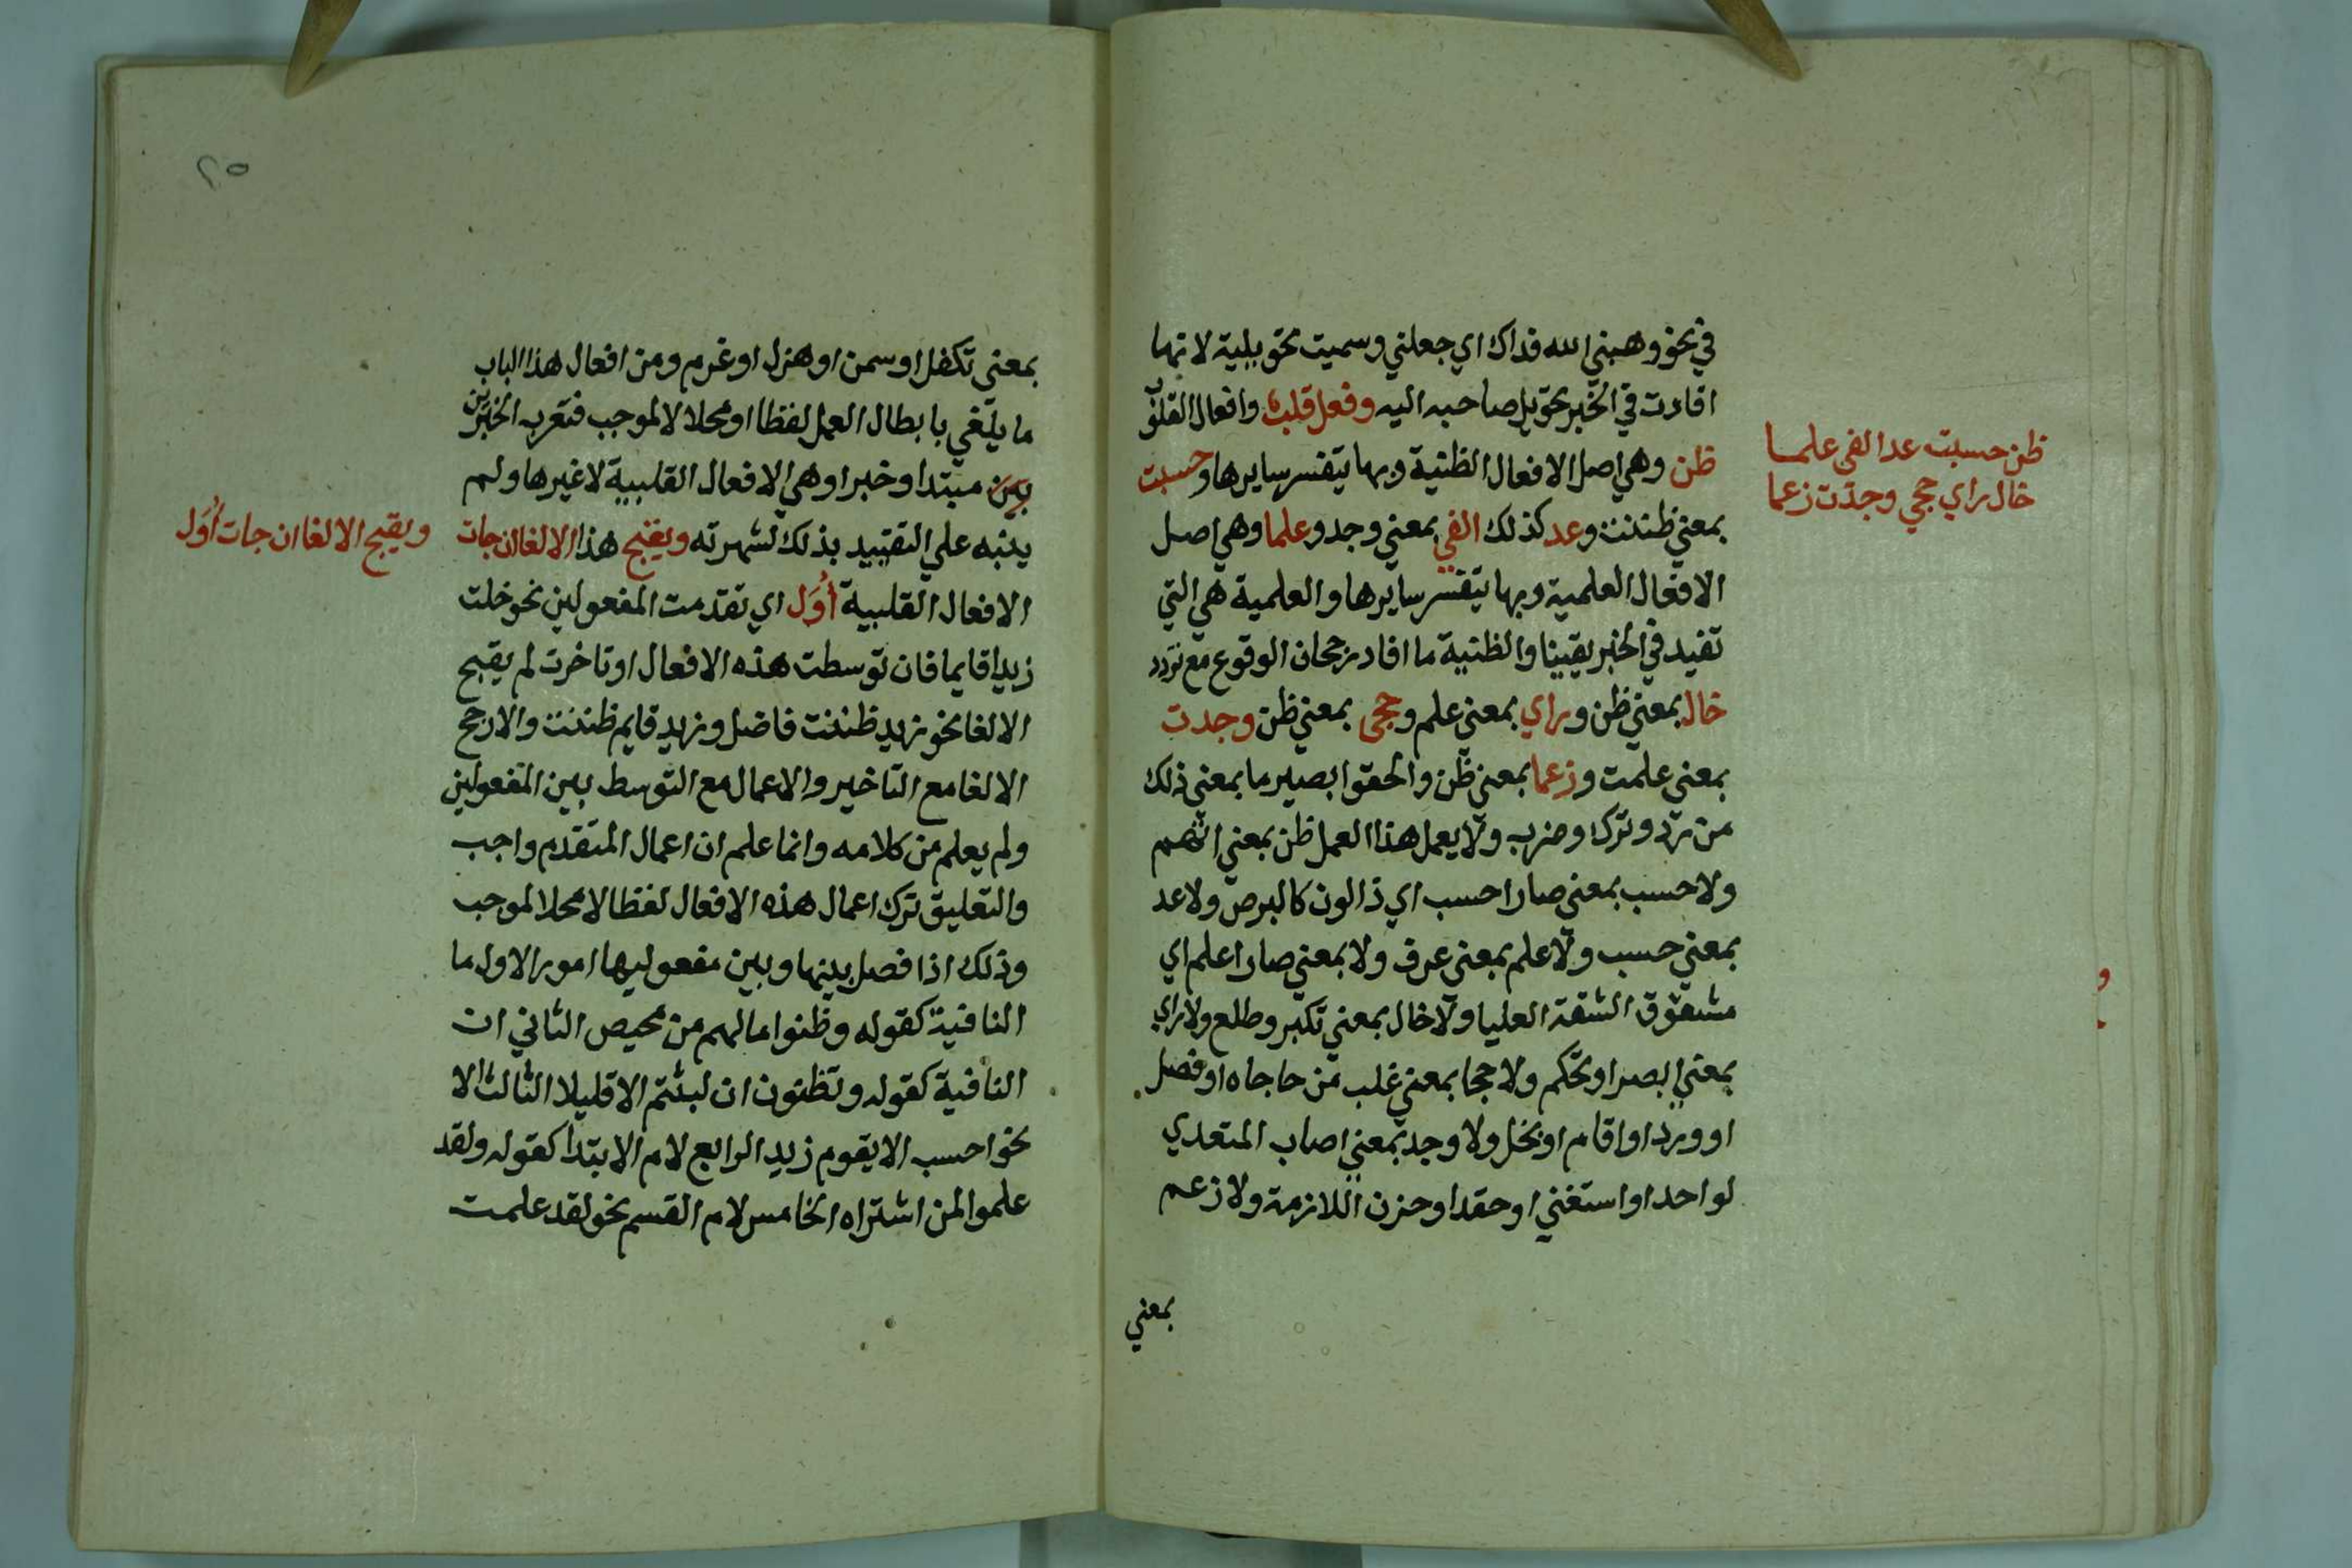 في نحو وهبني الله فداك اي جعلني وسميت تحويلية لانها
افادت في الخبر تحويل صاحبه اليه وفعل قلب وافعال القلوب
ظن وهي اصل الافعال الظنية وبها يتفسر سايرها وحسبت
بمعني ظننت وعد كذلك الفي بمعني وجد وعلما وهي اصل
الافعال العلمية وبها يتفسر سايرها والعلمية هي التي
تفيد في الخبر يقينا والظنية ما افاد رجحان الوقوع مع تردد
خال بمعني ظن وراي بمعني علم وحجي بمعني ظن وجدت
بمعني علمت وزعما بمعني ظن والحقوا بصير ما بمعني ذلك
من رد وترك وضرب ولا يعمل هذا العمل ظن بمعني اتهم
ولا حسب بمعني صار احسب اي ذا لون كالبرص ولا عد
بمعني حسب ولا علم بمعني عرف ولا بمعني صار اعلم اي
مشقوق الشفة العليا ولا خال بمعني تكبر وظلع ولا راي
بمعني ابصر او تحكم ولا حجا بمعني غلب من حاجاه او فصل
او ورد او اقام او بخل ولا وجد بمعني اصاب المتعدي
لواحد او استغني او حقد او حزن اللازمة ولا زعم
بمعني
ظن حسبت عد الفي علما
خال راي حجي وجدت زعما
٢٥
بمعني تكفل او سمن او هزل او غرم ومن افعال هذا الباب
ما يلغي بابطال العمل لفظا او محلا لا لموجب فتعرب الخبرين
بين مبتدا وخبرا وهي الافعال القلبية لا غيرها ولم
ينبه علي التقييد بذلك لشهرته ويقبح هذا الالغا ان جات
الافعال القلبية أُوَل اي تقدمت المفعولين نحو خلت
زيدا قايما فان توسطت هذه الافعال او تاخرت لم يقبح
الالغا نحو زيد ظننت فاضل وزيد قايم ظننت والارجح
الالغا مع التاخير والاعمال مع التوسط بين المفعولين
ولم يعلم من كلامه وانما علم ان اعمال المتقدم واجب
والتعليق ترك اعمال هذه الافعال لفظا لا محلا لموجب
وذلك اذا فصل بينها وبين مفعوليها امور الاول ما
النافية كقوله وظنوا ما لهم من محيص الثاني ان
النافية كقوله وتظنون ان لبثتم الا قليلا الثالث لا
نحو احسب لا يقوم زيد الرابع لام الابتدا كقوله ولقد
علموا لمن اشتراه الخامس لام القسم نحو لقد علمت
ويقبح الالغا ان جات أُوَل